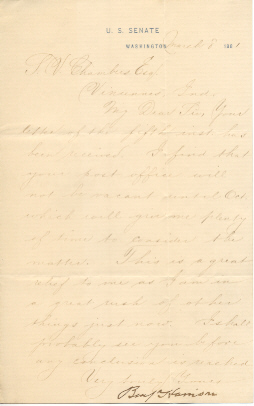 U. S. SENATE
WASHINGTON March 8 1881
Chambers Esq
Vincennes Ind.
My Dear Sir, Your
letter of the fifth inst has
been received. I find that
your post office will
not be vacant until Oct.
which will give me plenty
of time to consider the
matter. This is a great
relief to me as I am in
a great rush of other
things just now. I shall
probably see you before
any conclusion is reached
Very truly Yours
Benj Harrison